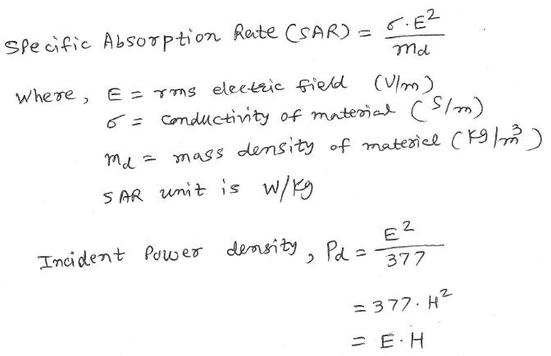 Specific Absorption Rate (SAR) = σ·E² / md
Where, E = rms electric field (V/m)
σ = conductivity of material (S/m)
md = mass density of material (kg/m³)
SAR unit is W/kg
Incident Power density, Pd = E² / 377
= 377·H²
= E·H